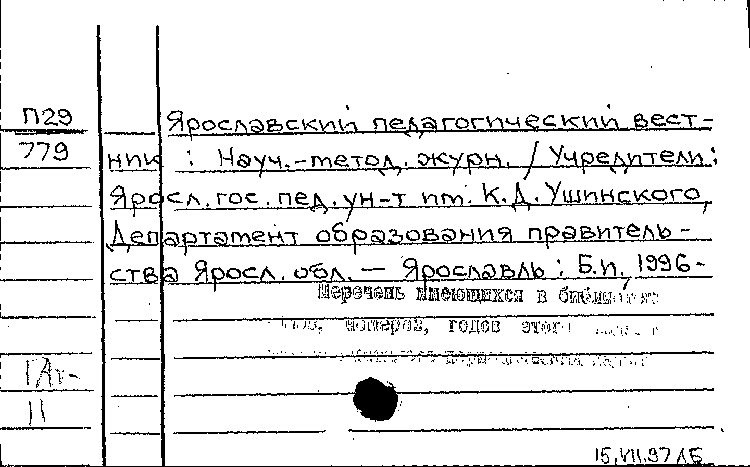 П29
779
Ярославский педагогический вест-
ник : Науч.-метод. журн. / Учредители:
Яросл. гос. пед. ун-т им. К.Д. Ушинского,
Департамент образования правитель-
ства Яросл. обл. — Ярославль : Б.и., 1996-
Перечень имеющихся в
номеров, годов этого
15.VII.97